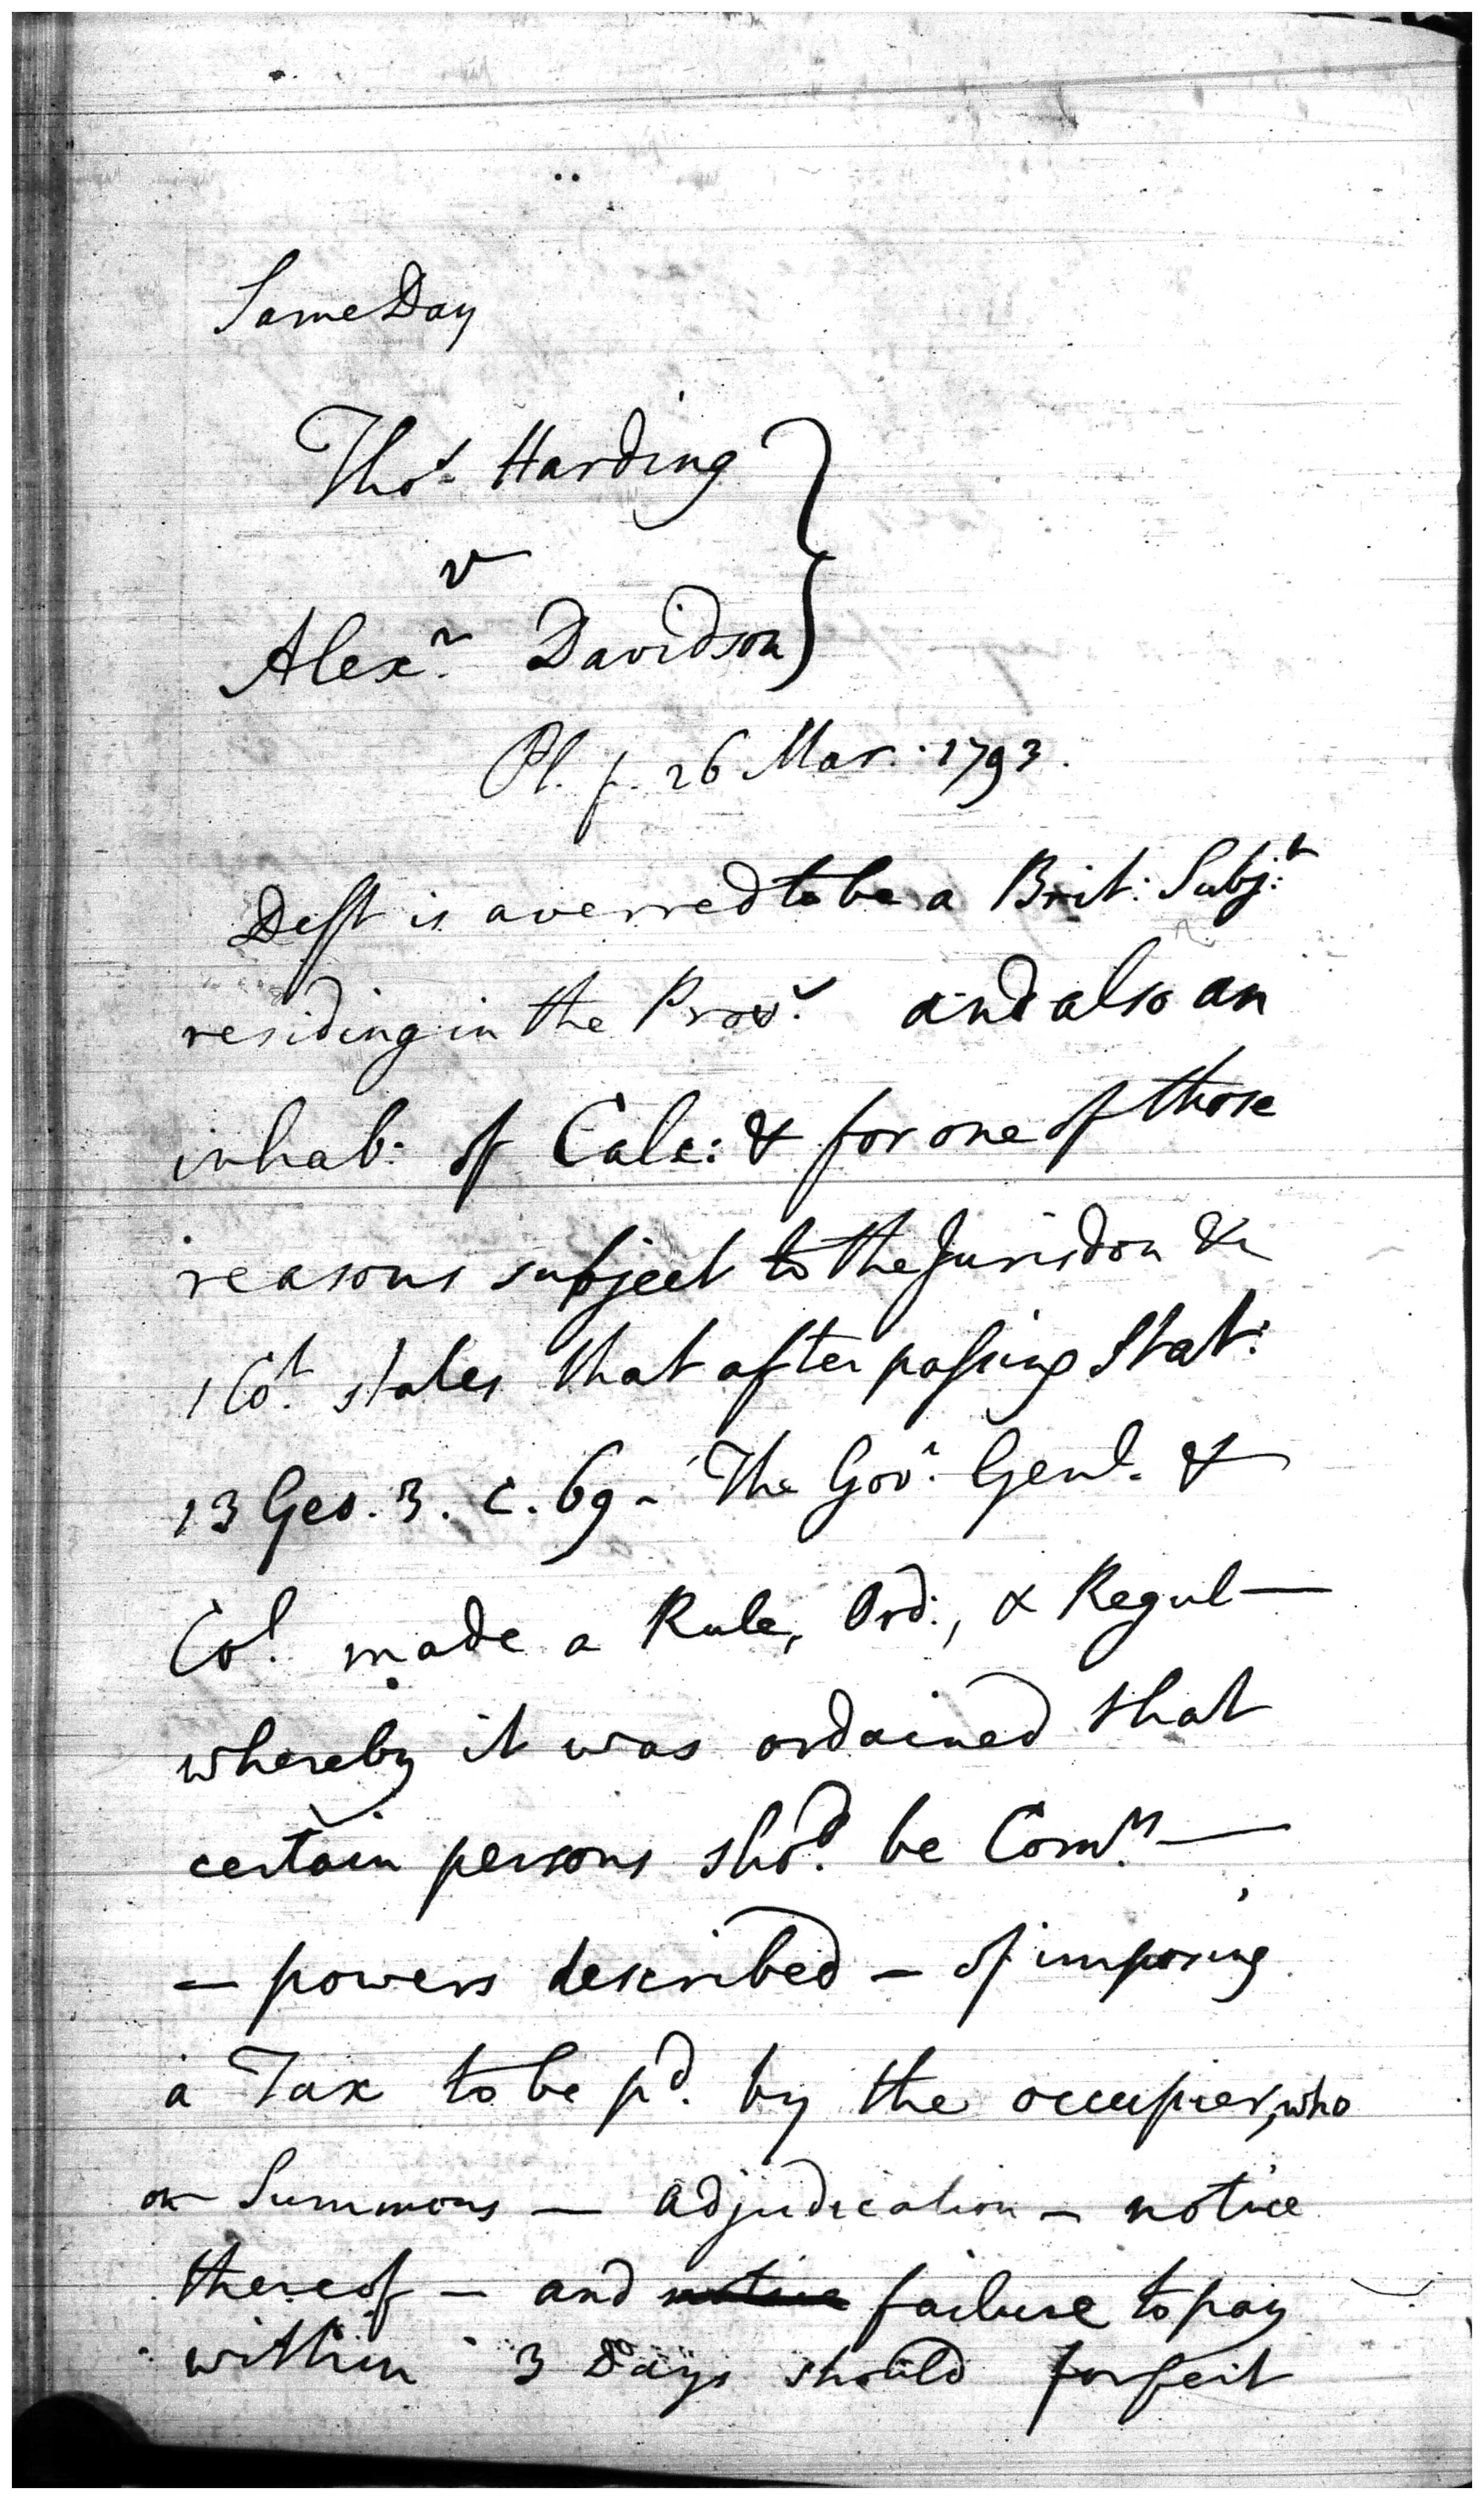 Same Day
Thos. Harding
v
Alexr. Davidson
Pl. f. 26 Mar. 1793.
Deft is averred to be a Brit: Subjt.
residing in the Prov. and also an
inhab: of Calc: & for one of those
reasons subject to the Jurisdon &c
1 Ct. states that after passing Stat:
13 Geo. 3. c. 69 - The Govr. Genl. &
Col. made a Rule, Ord:, & Regul—
whereby it was ordained that
certain persons shod. be Comrs. —
— powers described — of imposing
a Tax to be pd. by the occupier, who
on Summons — adjudication — notice
thereof — and notice failure to pay
within 3 Days should forfeit